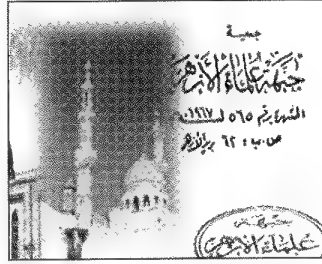 جمعية
جبهة علماء الأزهر
المشهرة برقم ٥٦٥ لسنة ١٩٦٧
ص.ب : ٦٢ بريد الأزهر
جبهة
علماء الأزهر